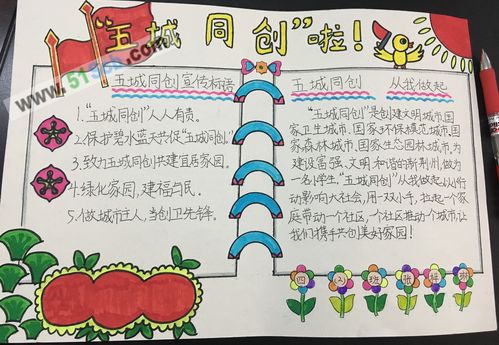 “五城同创”啦！
www.51
.com
五城同创宣传标语
1.“五城同创”人人有责。
2.保护碧水蓝天共促“五城同创”
3.致力五城同创共建宜居家园。
4.绿化家园，建福与民。
5.做城市主人，当创卫先锋。
五城同创 从我做起
“五城同创”是创建文明城市、国
家卫生城市、国家环保模范城市、国
家森林城市、国家生态园林城市。为
建设富强、文明、和谐的新荆州，做为
一名小学生，“五城同创”从我做起，从小行
动影响大社会，用一双小手，拉起一个家
庭带动一个社区，一个社区推动一个城市，让
我们携手共创美好家园！
四 班